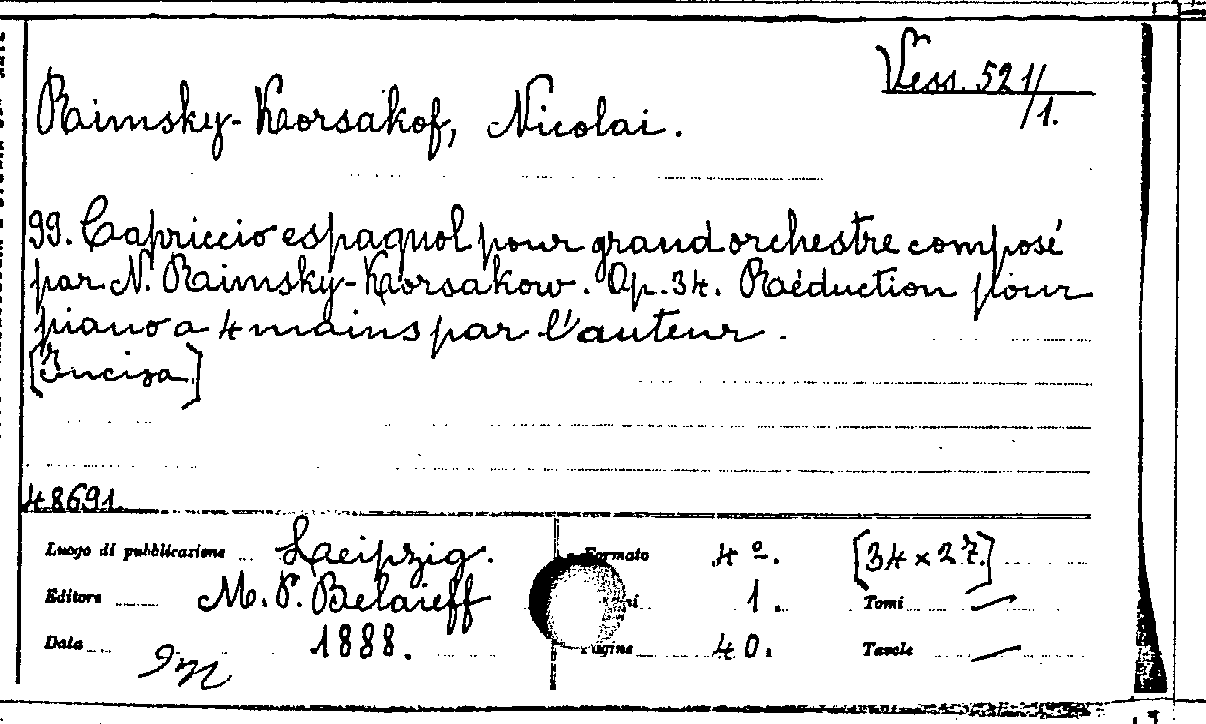 Vess. 521/1.
Rimsky-Korsakof, Nicolai.
99. Capriccio espagnol pour grand orchestre composé
par N. Rimsky-Korsakow. Op. 34. Réduction pour
piano a 4 mains par l'auteur.
[Incisa]
48691.
Luogo di pubblicazione Leipzig. Formato 4º. [34 x 27.]
Editore M. P. Belaieff 1. Tomi —
Data 1888. 40. Tavole —